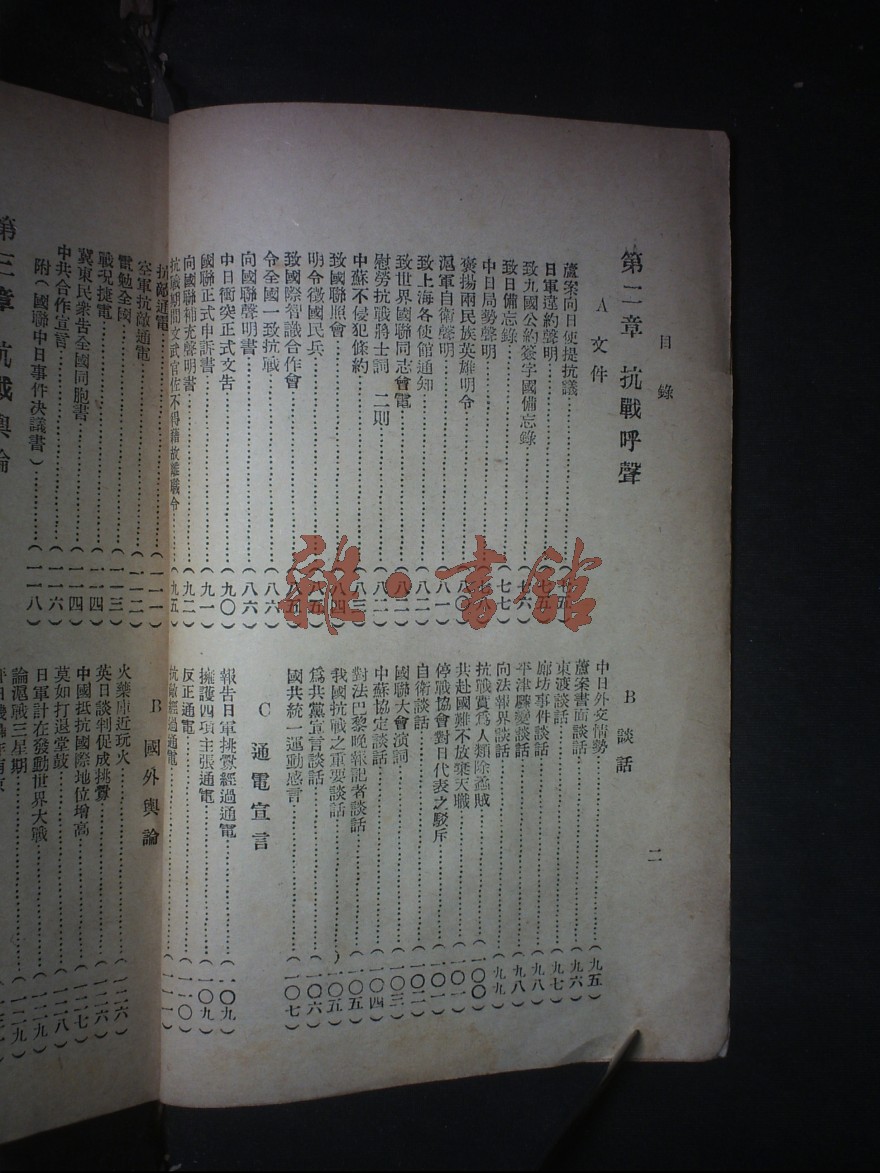 目錄
二
第二章 抗戰呼聲
A 文件
蘆案向日使提抗議
日軍違約聲明
致九國公約簽字國備忘錄……(七六)
致日備忘錄……(七七)
中日局勢聲明
褒揚兩民族英雄明令……(八〇)
滬軍自衛聲明……(八一)
致上海各使館通知……(八二)
致世界國聯同志會電……(八二)
慰勞抗戰將士詞 二則……(八二)
中蘇不侵犯條約……(八三)
致國聯照會……(八四)
明令徵國民兵……(八五)
致國際智識合作會……(八五)
令全國一致抗戰……(八六)
向國聯聲明書……(八六)
中日衝突正式文告……(九〇)
國聯正式申訴書……(九一)
向國聯補充聲明書……(九二)
抗戰期間文武官佐不得藉故離職令……(九五)
B 談話
中日外交情勢……(九五)
蘆案書面談話……(九六)
東渡談話……(九七)
廊坊事件談話……(九八)
平津驟變談話……(九八)
向法報界談話……(九九)
抗戰實為人類除蟊賊……(一〇〇)
共赴國難不放棄天職……(一〇一)
停戰協會對日代表之駁斥……(一〇一)
自衛談話……(一〇二)
國聯大會演詞……(一〇三)
中蘇協定談話……(一〇四)
對法巴黎晚報記者談話……(一〇五)
我國抗戰之重要談話……(一〇五)
為共黨宣言談話……(一〇六)
國共統一運動感言……(一〇七)
C 通電宣言
報告日軍挑釁經過通電……(一〇九)
擁護四項主張通電……(一〇九)
反正通電……(一一〇)
抗敵經過通電……(一一一)
抗敵通電……(一一一)
空軍抗敵通電……(一一二)
電勉全國……(一一三)
戰況捷電……(一一四)
冀東民衆告全國同胞書……(一一四)
中共合作宣言……(一一六)
附(國聯中日事件決議書)……(一一八)
第三章 抗戰輿論
B 國外輿論
火藥庫近玩火……(一二六)
英日談判促成挑釁……(一二六)
中國抵抗國際地位增高……(一二七)
莫如打退堂鼓……(一二八)
日軍計在發動世界大戰……(一二九)
論滬戰三星期……(一二九)
雜·書館